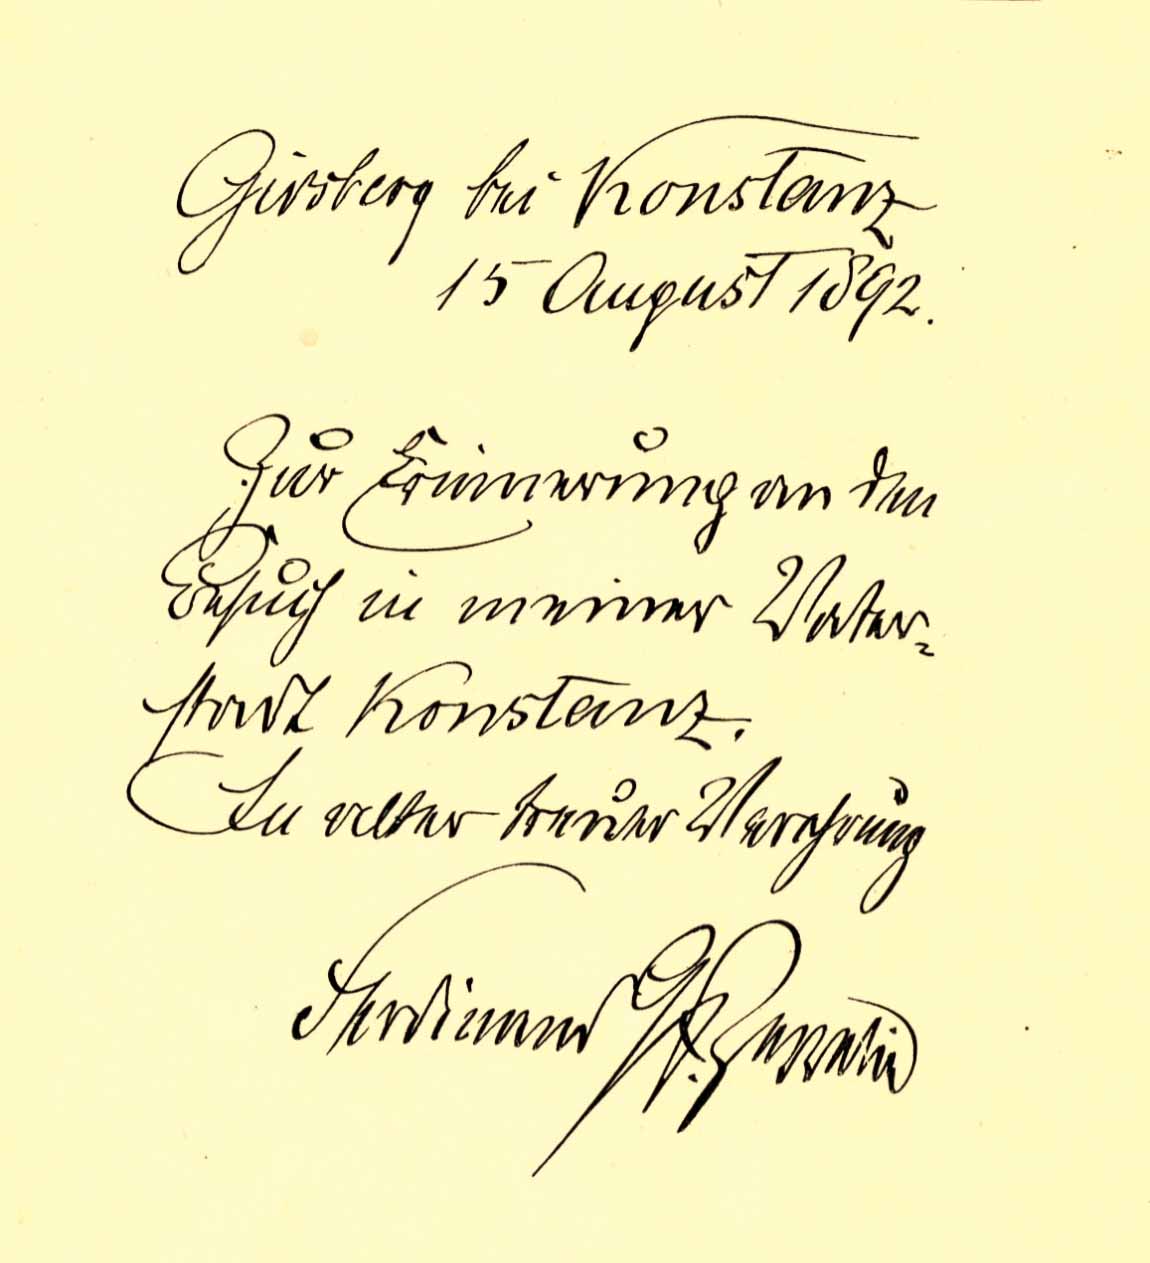 Girsberg bei Konstanz
15 August 1892.
Zur Erinnerung an den
Besuch in meiner Vater-
stadt Konstanz.
In alter treuer Verehrung
Ferdinand Gf. Zeppelin